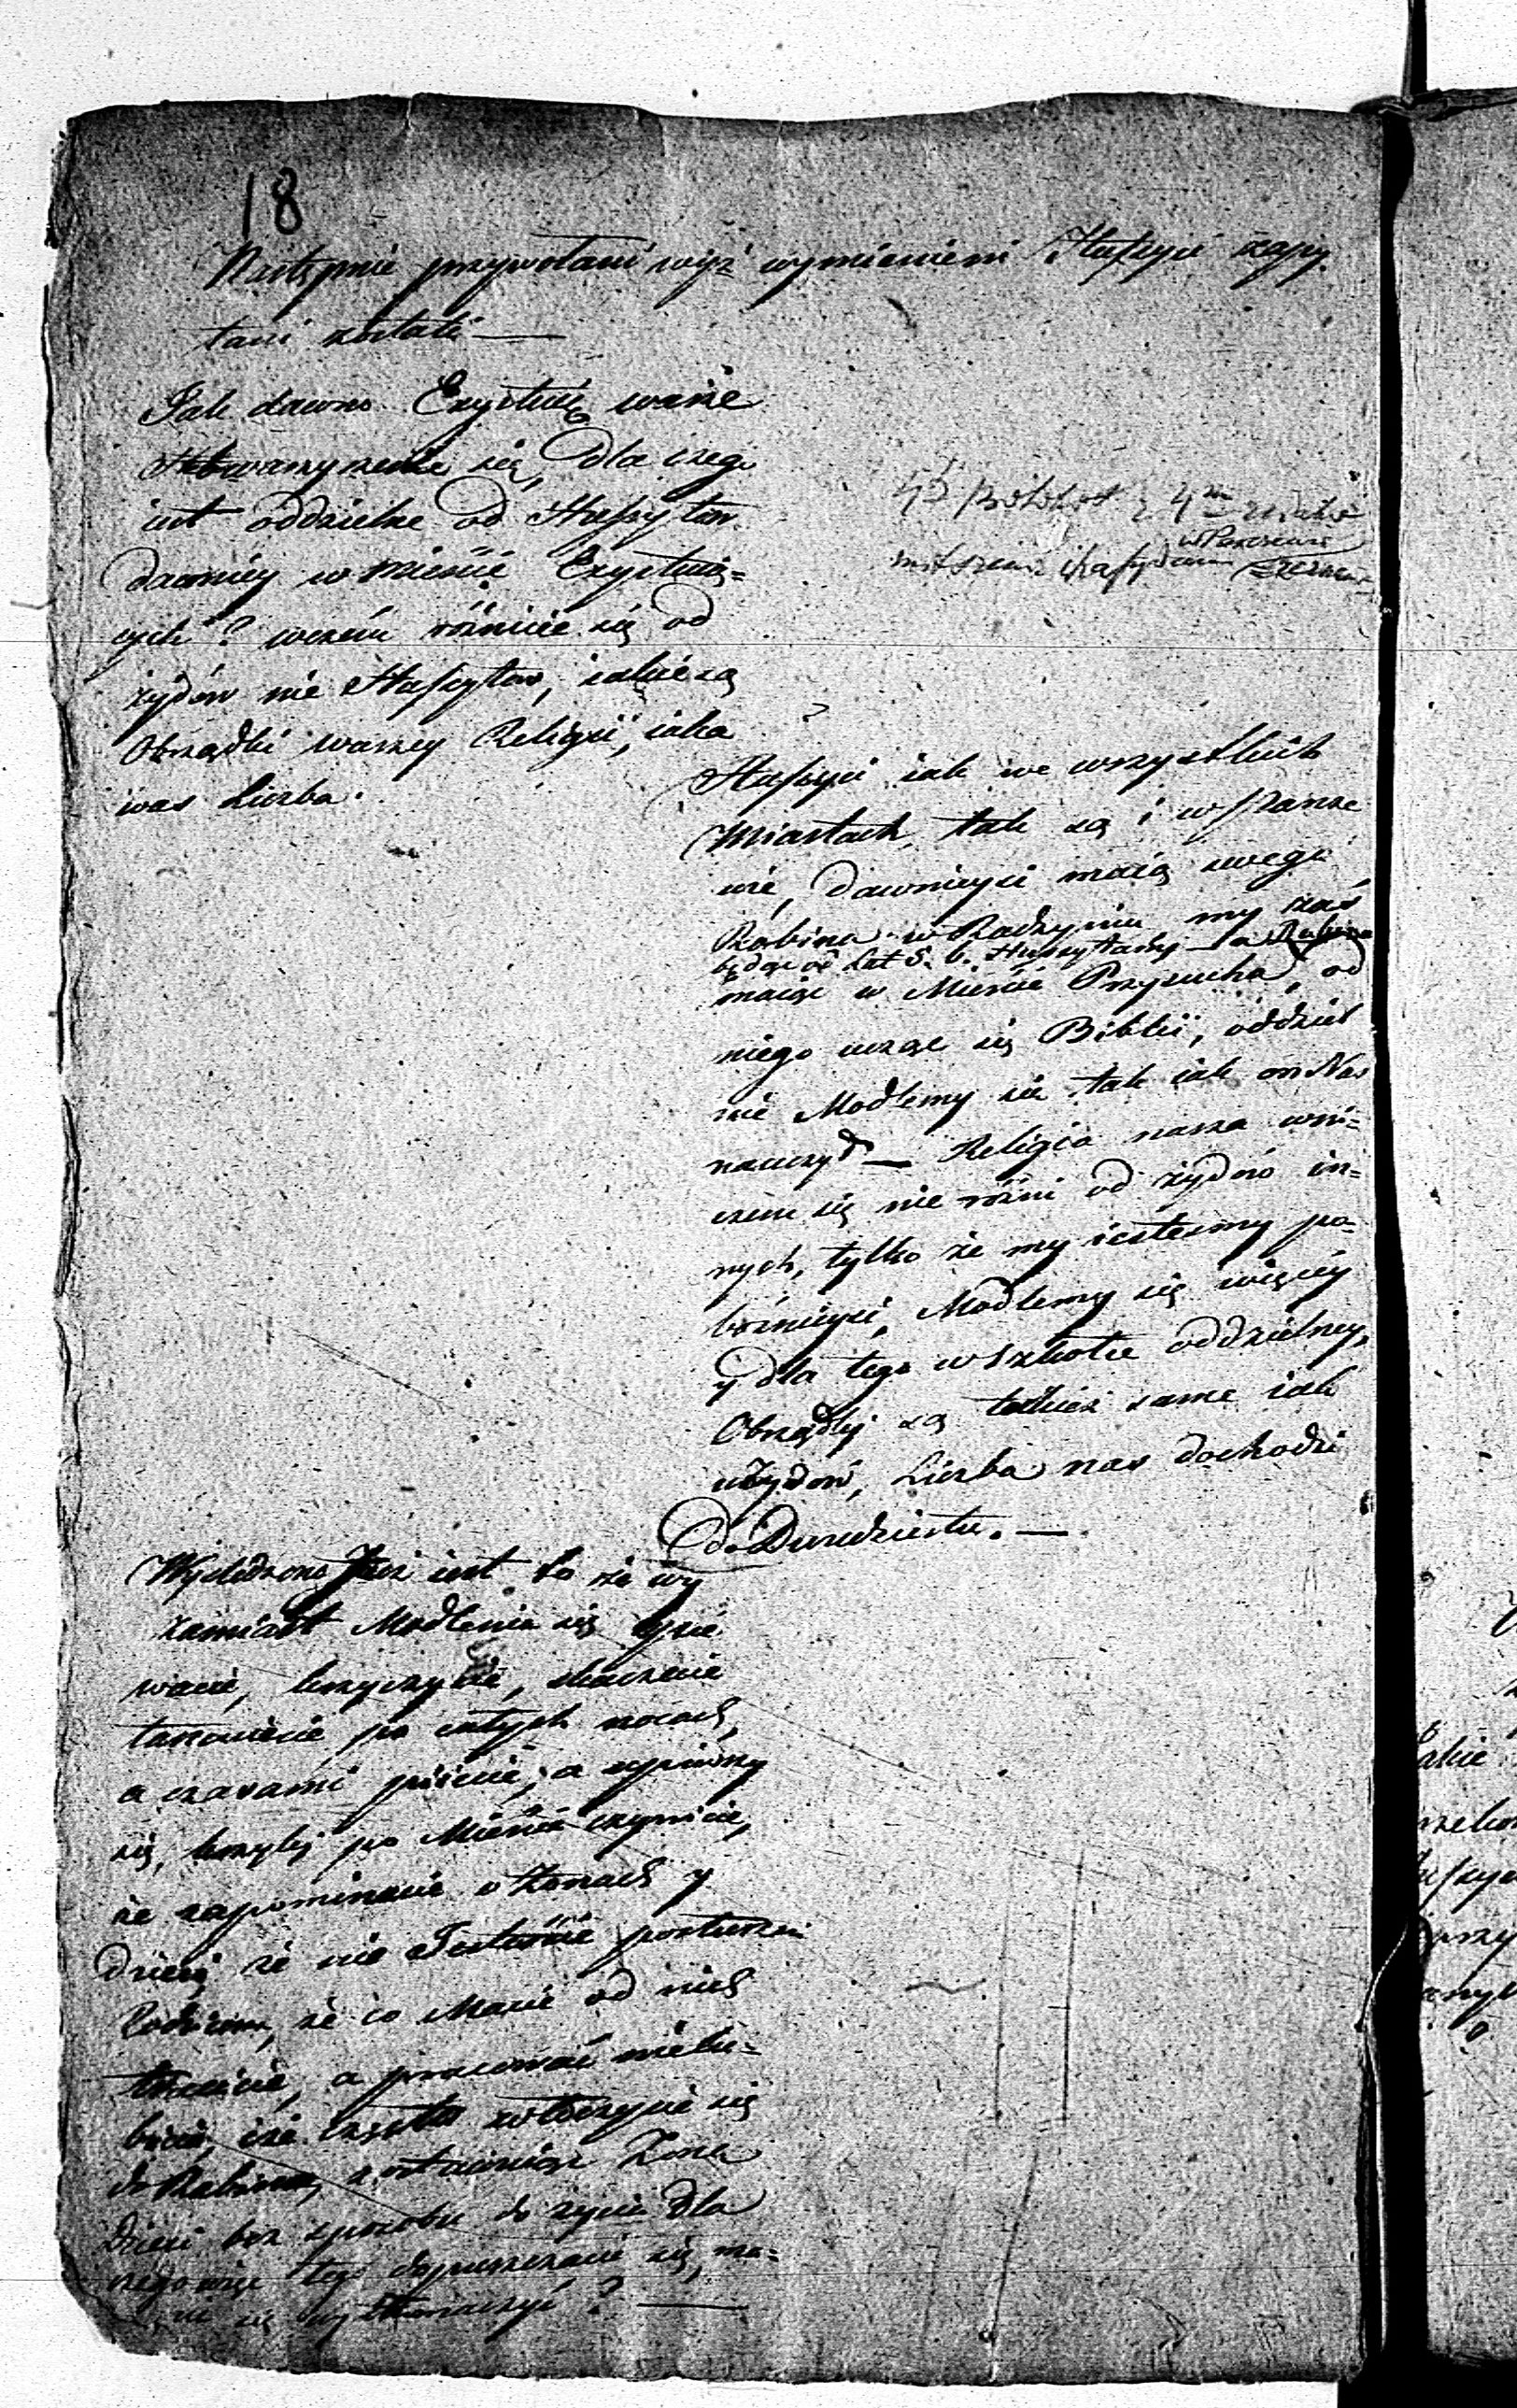 18
Następnie przywołani wyż wymienieni Hussyci zapy
tani zostali —
Jak dawno Exystuie wasze
Stowarzyszenie się, dla czego
iest oddzielne od Hussytow
dawniey w Mieście Exystuią=
cych? wczém różnicie się od
żydów nie Hussytow, iakie są
Obrządki waszey Religii, iaka
was Liczba.
w Parczewie
Hussyci iak we wszystkich
Miastach, tak są i w Parcze
wie, dawnieysi maią swego
Rabina w Radzyniu my zaś
będąc od Lat 5. b. Hussytamy — a Rabina
maiąc w Mieście Przysucha, od
niego ucząc się Biblii, oddziel
nie Modlemy sie tak iak on Nas
nauczył — Religia nasza wni=
czem się nie różni od żydów in=
nych, tylko że my iestesmy po=
bożnieysi, Modlemy się więcéy
y dla tego w Szkole oddzielney,
Obrządki są takież same iak
u Żydów, Liczba nas dochodzi
do Dwudziestu. —
Wyśledzono iest to że wy
zamiast Modlenia się śpie
wacie, krzyczycie, skaczecie
tańcuiecie po całych nocach,
a czasami piiecie, a upiwszy
się, krzyki po Mieście czynicie,
że zapominacie o Żonach y
dzieci, że nie Jesteście posłuszni
Rodzicom, że co Macie od nich
tracicie, a pracować nielu=
bicie, i że często włóczycie się
do Rabina, zostawiając Żonę
dzieci bez sposobu do życia Dla
czego więc tego dopuszczacie się, ma=
cie się wytłomaczyć? —